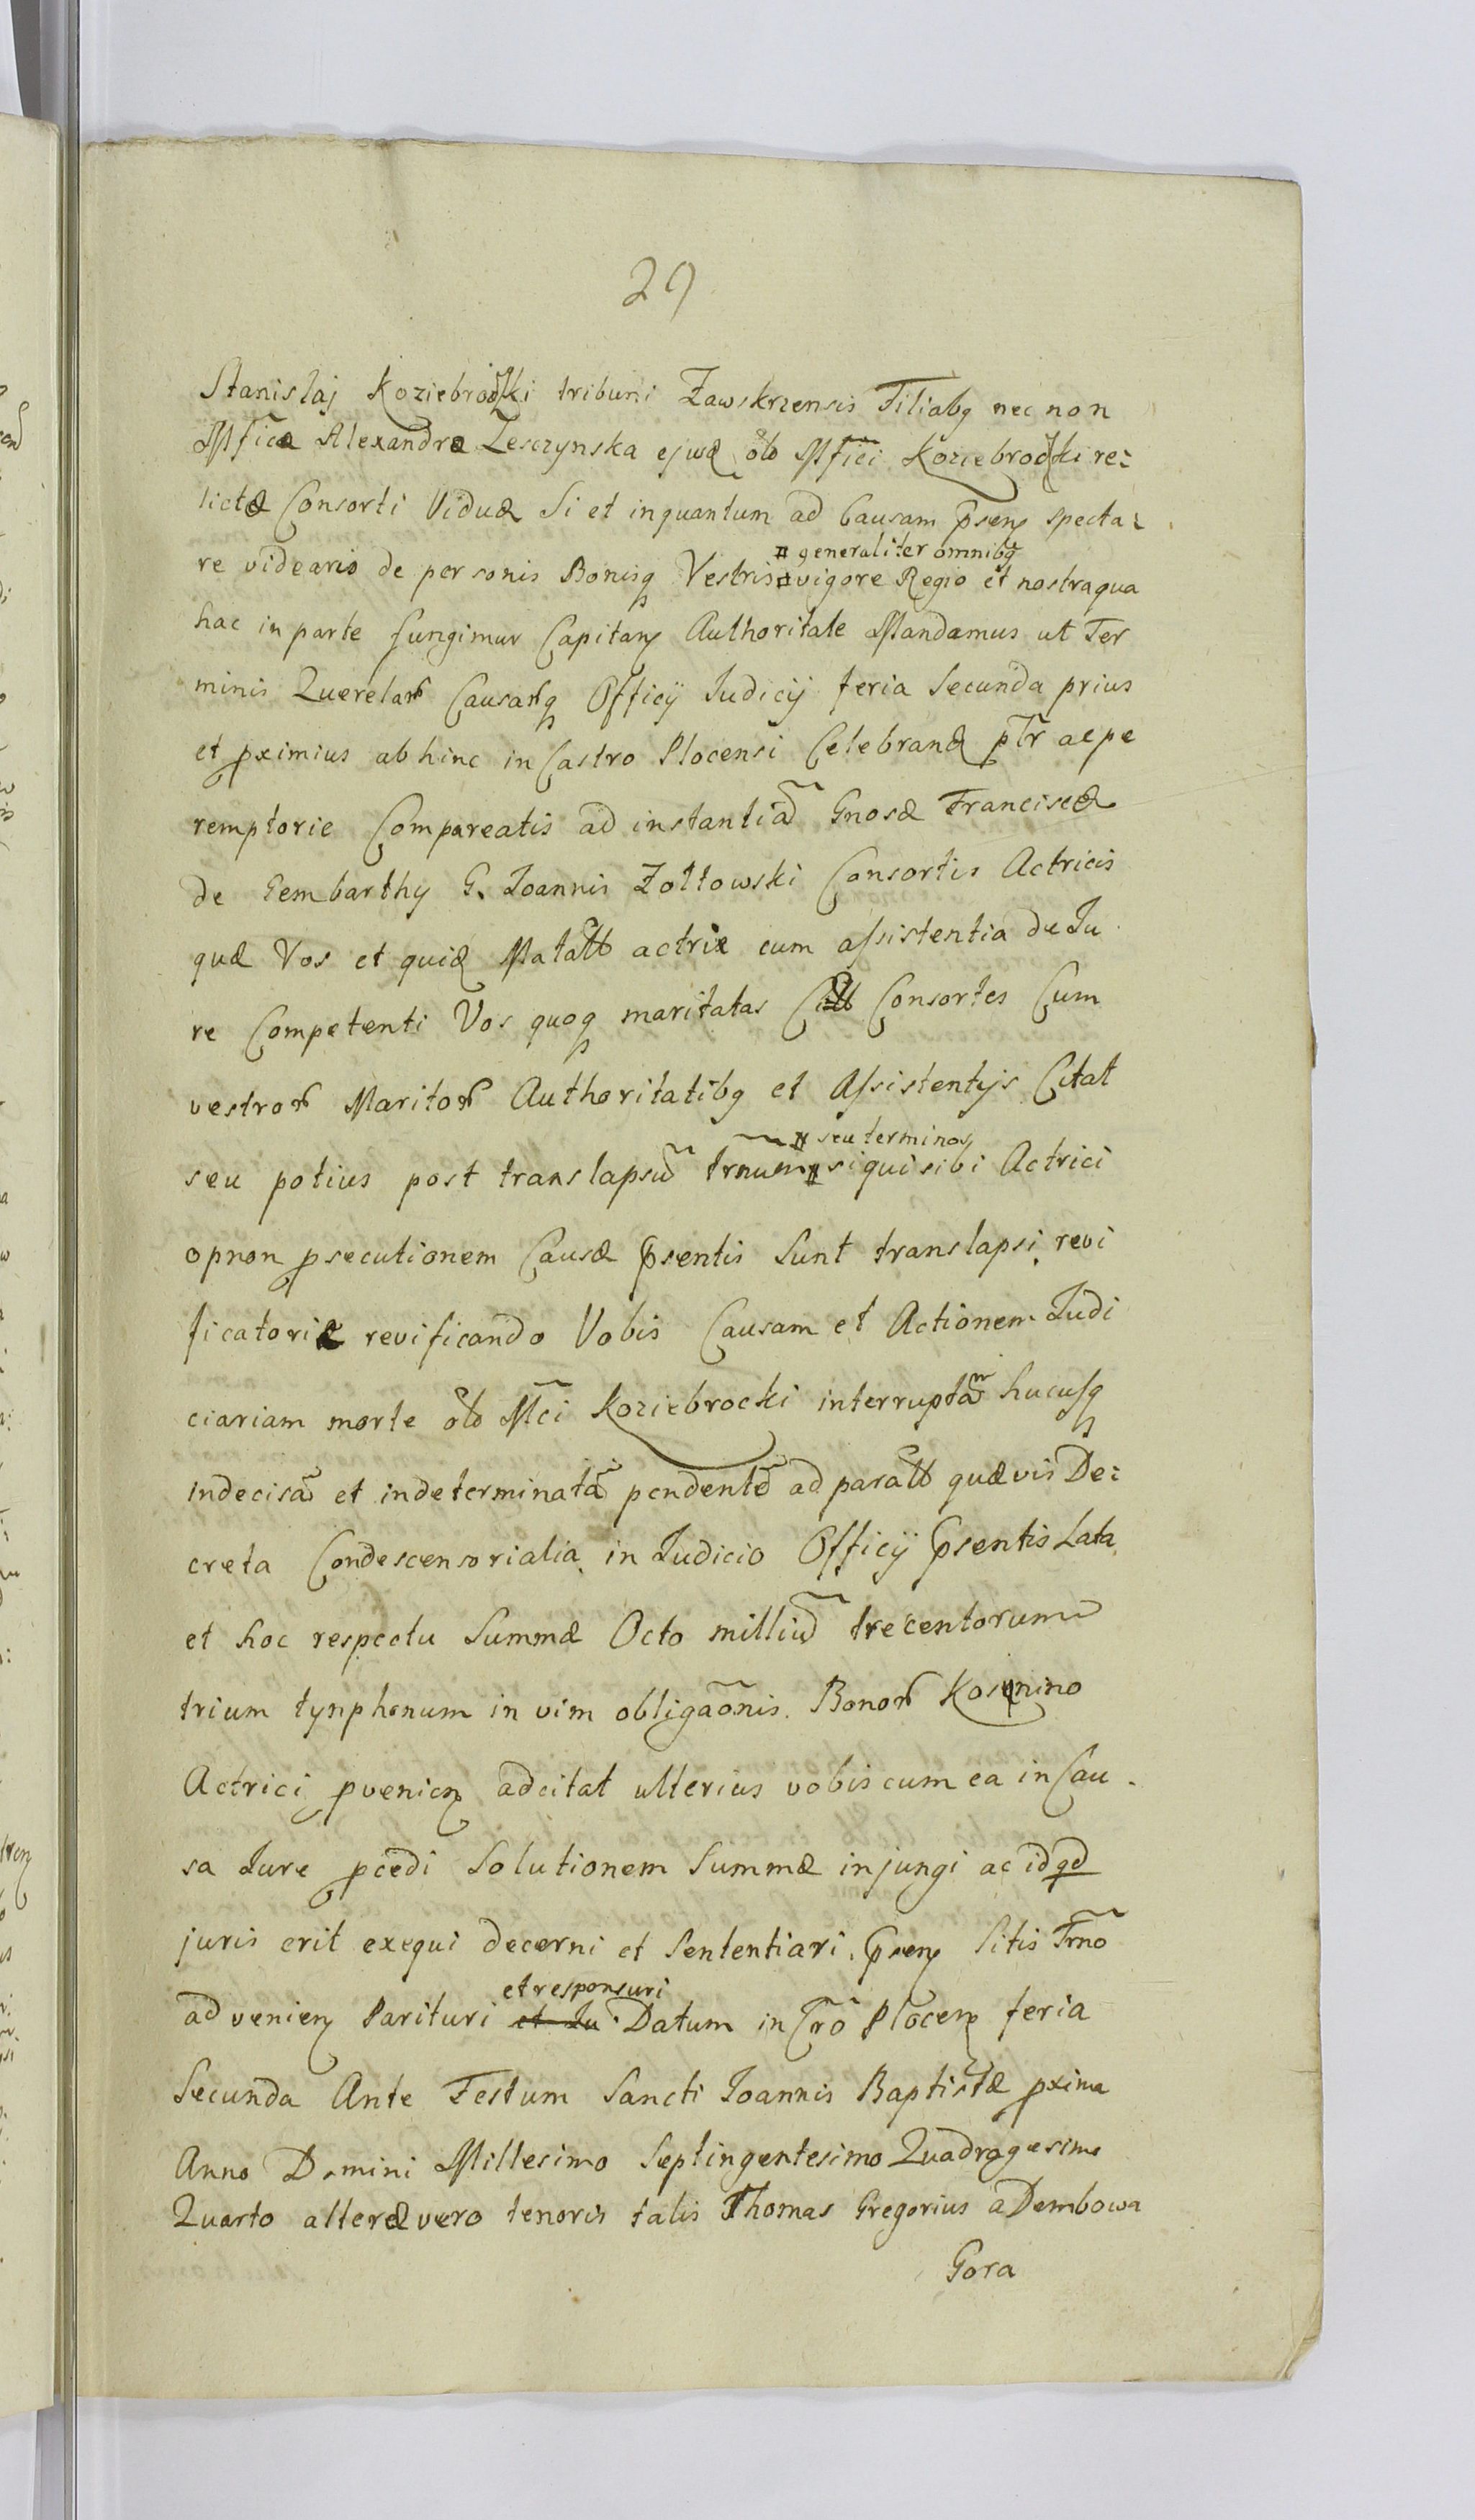 29
Stanislai Koziebrodzki tribuni Zawskrzensis Filiabq nec non
Mficæ Alexandræ Zesczynska ejusd olb Mfici Koziebrodzki re-
lictæ Consorti Viduæ Si et inquantum ad Causam psens specta-
# generaliter omnibq
re videaris de personis Bonisq Vestris # vigore Regio et nostra qua
hac in parte fungimur Capitany Authoritate Mandamus ut Ter
minis Querelar Causarq Officy Judicij feria Secunda prius
et pximius abhinc in Castro Plocensi Celebrand ptr ac pe
remptorie Compareatis ad instantia Gnosæ Franciscæ
de Gembarthy G. Joannis Zoltowski Consortis Actricis
quæ Vos et quid Matalb actrix cum assistentia de Ju
re Competenti Vos quoq maritatas Consortes Cum
vestror Maritor Authoritatibq et Assistentijs Citat
# seu terminos
seu potius post translapsu trnum # siqui sibi Actrici
opnon psecutionem Causæ psentis sunt translapsi, revi
ficatoriæ revificando Vobis Causam et Actionem Judi
ciariam morte olb Mci Koziebrocki interruptam hucusq
indecisa et indeterminata pendente ad paralb quævis De-
creta Condescensorialia in Judicio Officij psentis Lata
et hoc respectu Summæ Octo milliu trecentorum
trium tynphonum in vim obligaonis Bonor Kosinino
Actrici pvenien adcitat ulterius vobis cum ea in Cau-
sa Jure pcedi Solutionem Summæ injungi ac id qd
juris erit exequi decerni et Sententiari. psens Sitis Trno
et responsuri
advenien Parituri et Ju Datum in Cro Plocen feria
Secunda Ante Festum Sancti Joannis Baptistæ pxima
Anno Domini Millesimo Septingentesimo Quadragesimo
Quarto alteræ vero tenoris talis Thomas Gregorius a Dembowa
Gora